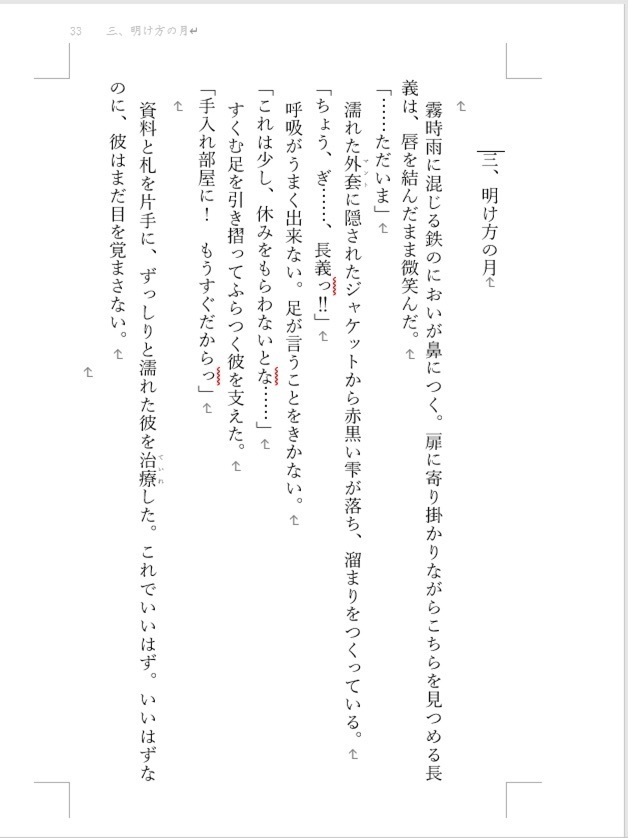 33 三、明け方の月
三、明け方の月
霧時雨に混じる鉄のにおいが鼻につく。扉に寄り掛かりながらこちらを見つめる長
義は、唇を結んだまま微笑んだ。
「……ただいま」
濡れた外套に隠されたジャケットから赤黒い雫が落ち、溜まりをつくっている。
マント
「ちょう、ぎ……、長義っ!!」
呼吸がうまく出来ない。足が言うことをきかない。
「これは少し、休みをもらわないとな……」
すくむ足を引き摺ってふらつく彼を支えた。
「手入れ部屋に！　もうすぐだからっ」
資料と札を片手に、ずっしりと濡れた彼を治療した。これでいいはず。いいはずな
ていれ
のに、彼はまだ目を覚まさない。